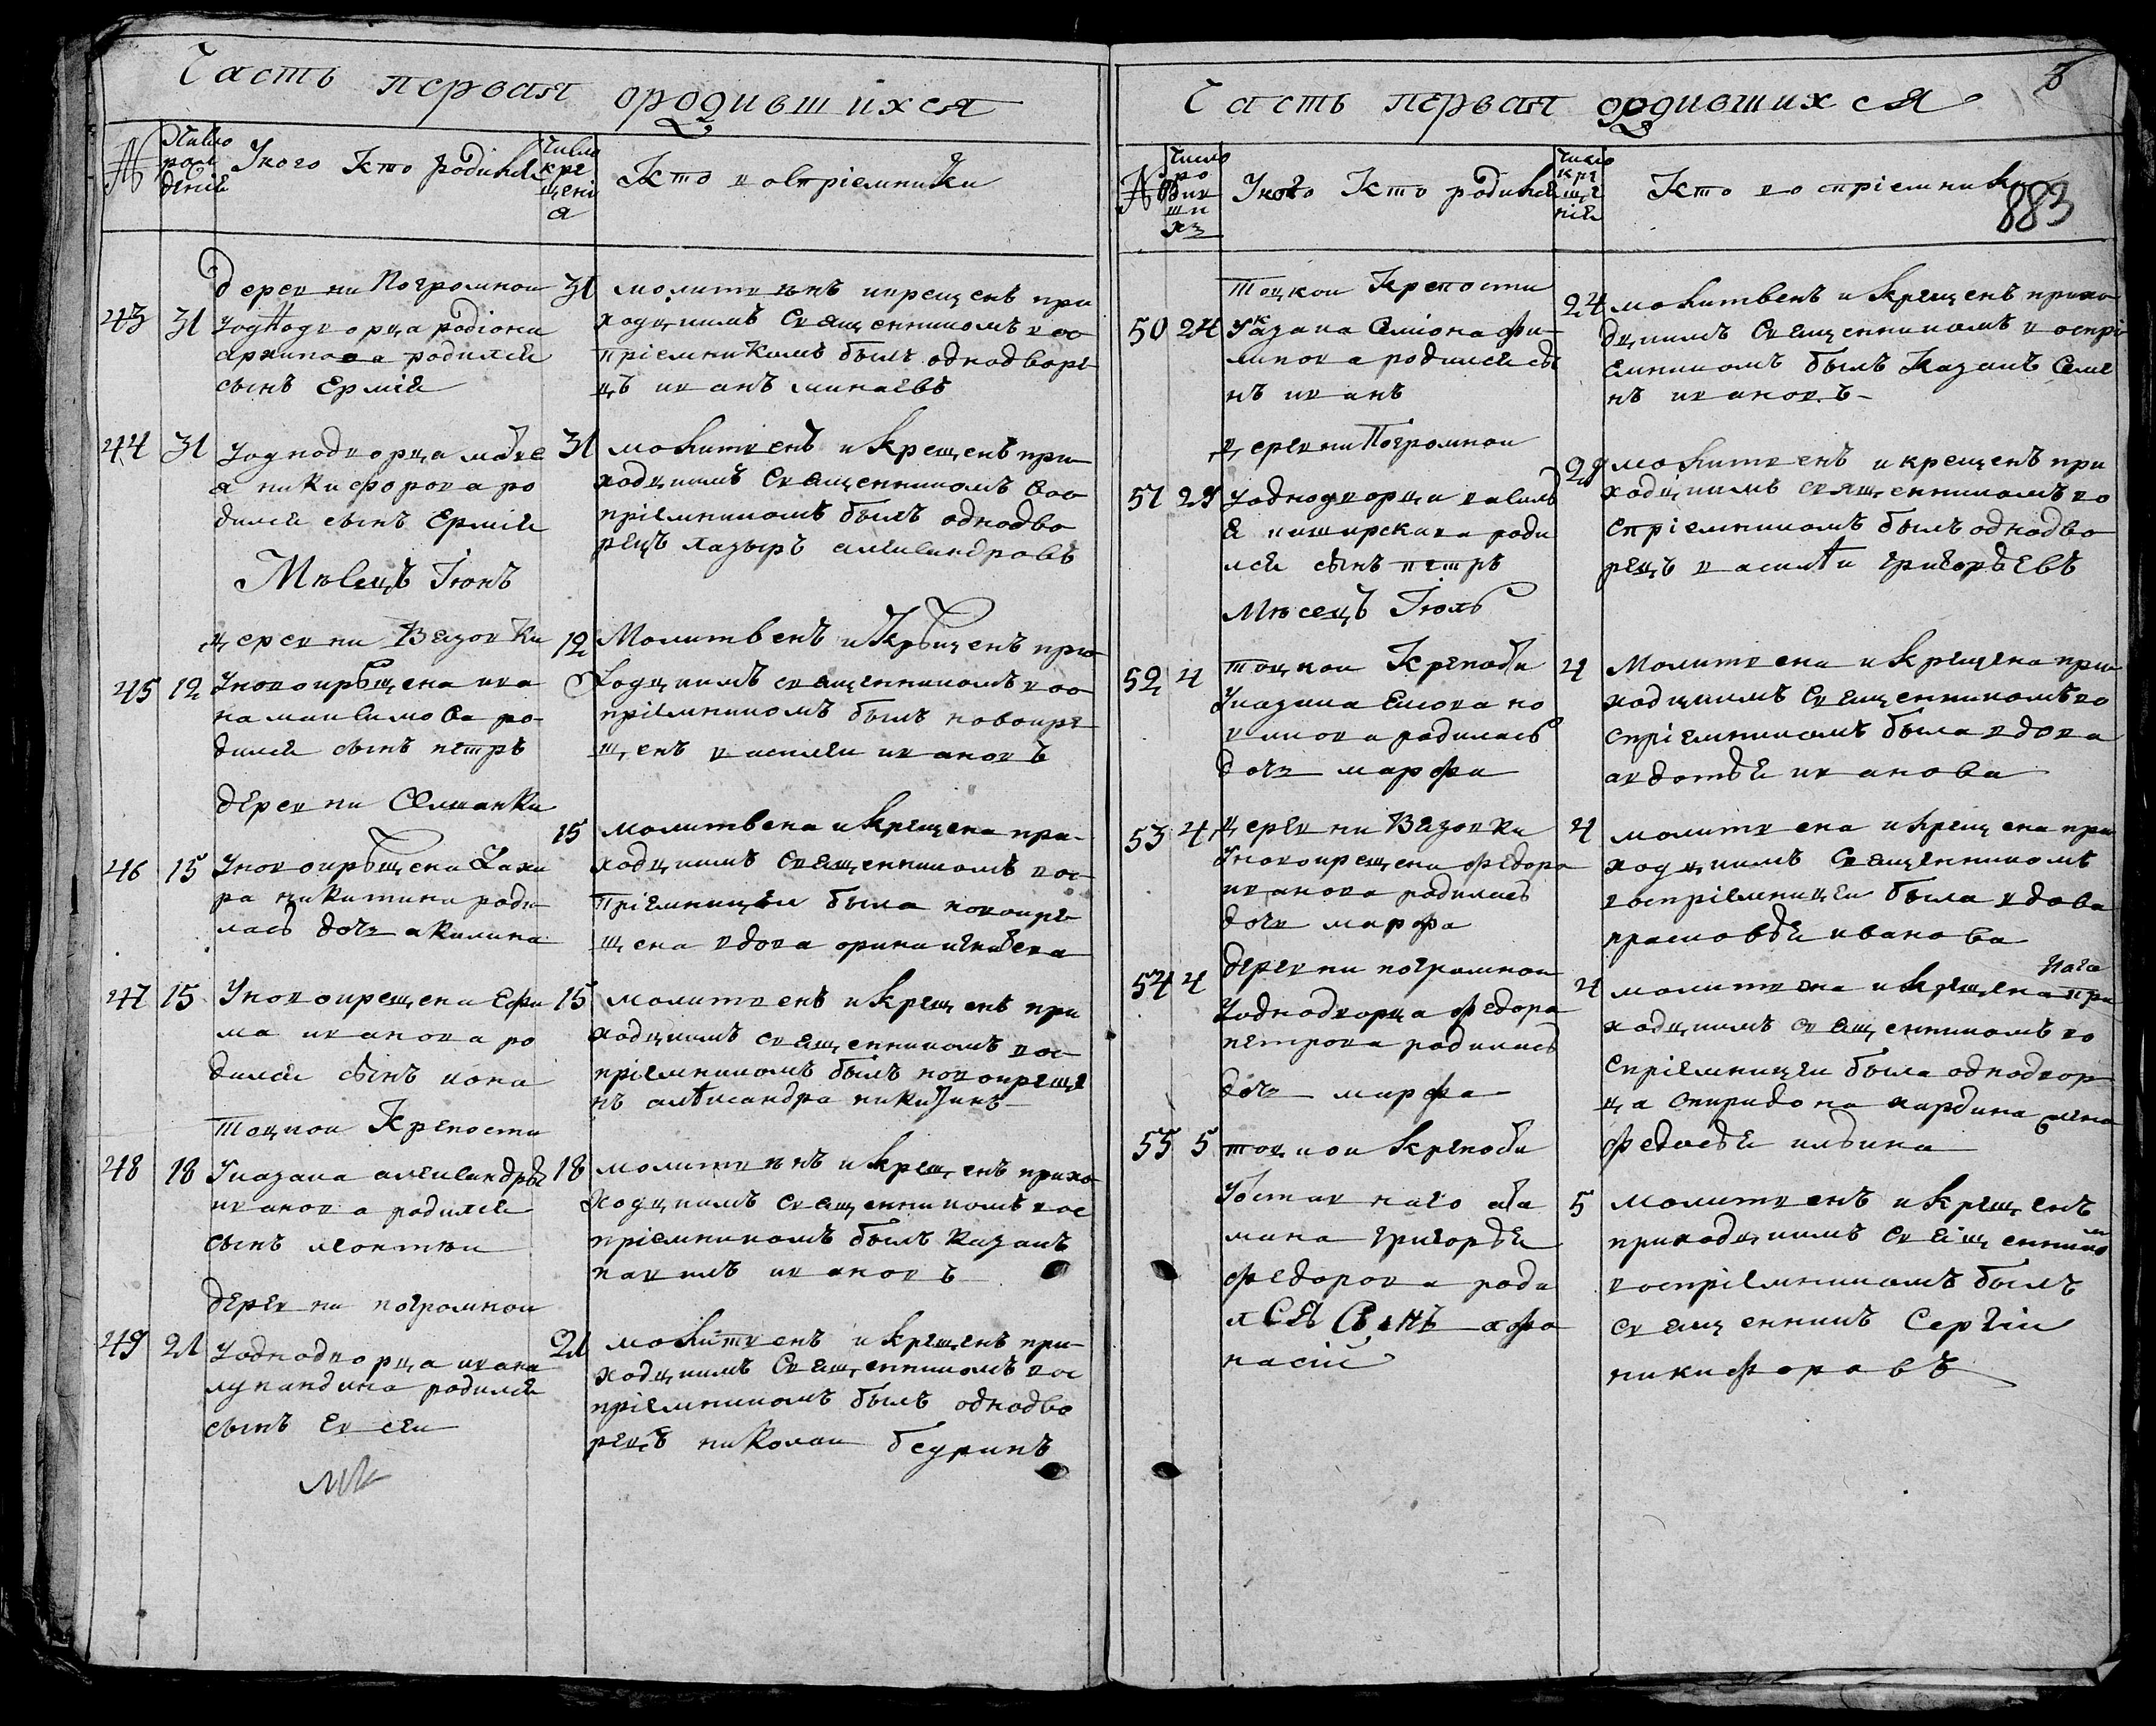 Часть первая ородившихся
№
Число рож дения
Укого Кто родился
Число кре щени я
Кто воспріемники
деревни Погромнои
43 31 Уодподворца родіона
архипова родился
сынъ Ермія
31 молитвенъ икрещенъ при
ходцкимъ Священникомъ вос
пріемникомъ былъ однодворе
цъ иванъ минаевъ
44 31 Уоднодворца матве
я никифорова ро
дился сынъ Ермія
31 молитвенъ и крещенъ при
ходцкимъ Священникомъ вос
пріемникомъ былъ однодво
рецъ лазырь александровъ
Мѣсецъ Іюнь
деревни Вязовки
45 12 Уновокрещена ива
на максимова ро
дился сынъ петръ
12 Молитвенъ и Крещенъ при
ходцкимъ священникомъ вос
пріемникомъ былъ новокре
щенъ василеи ивановъ
деревни
46 15 Уновокрещена Заха
ра никитина роди
лась дочь акилина
15 молитвена и крещена при
ходцкимъ священникомъ вос
пріемницеи была новокре
щена вдова орина
47 15 Уновокрещена Ефи
ма иванова ро
дился сынъ иона
15 молитвенъ и крещенъ при
ходцкимъ священникомъ вос
пріемникомъ былъ новокреще
нъ александра никитинъ
тоцкои Крепости
48 18 Указака александръ
иванова родился
сынъ леонтеи
18 молитвенъ и крещенъ прихо
ходцкимъ священникомъ вос
пріемникомъ былъ казакъ
павилъ ивановъ
деревни погромнои
49 21 Уоднодворца ивана
лупандина родился
сынъ Евсеи
21 молитвенъ и крещенъ при
ходцкимъ Священникомъ вос
пріемникомъ былъ однодво
рецъ николаи беуринъ
Часть первая ородившихся
3
№
Число ро див ши хъ
Укого Кто родился
Число кре ще нія
Кто воспріемники
883
тоцкои Крепости
50 24 Указака Симіона фи
липова родился сы
нъ иванъ
24 молитвенъ и крещенъ прихо
дцкимъ Священникомъ воспрі
емникомъ былъ Казакъ Семе
нъ ивановъ
деревни Погромнои
51 29 Уоднодворца василь
я каширскива роди
лся сынъ петръ
29 молитвенъ и крещенъ при
ходцкимъ священникомъ во
спріемникомъ былъ однодво
рецъ василеи григорьевъ
Мѣсецъ Іюль
52 4 тоцкои Крепости
Указака
родилась
дочь марфа
4 Молитвена и крещена при
ходцкимъ Священникомъ во
спріемникомъ была вдова
авдотья иванова
53 4 деревни Вязовки
Уновокрещена федора
иванова родилась
дочь марфа
4 молитвена и крещена при
ходцкимъ Священникомъ
воспріемницеи была вдова
прасковья иванова
54 4 деревни погромнои
Уоднодворца федора
петрова родилась
дочь марфа
4 молитвена и крещена при
ходцкимъ священникомъ во
спріемницеи была однодвор
ца спиридона кардина жена
федосья ильина
55 5 тоцкои крепости
Уоставнаго ата
мана григорья
федорова роди
лСЯ Сынъ афа
насій
5 молитвенъ и крещенъ
приходцкимъ священником
воспріемникомъ былъ
священникъ Сергіи
никифоровъ